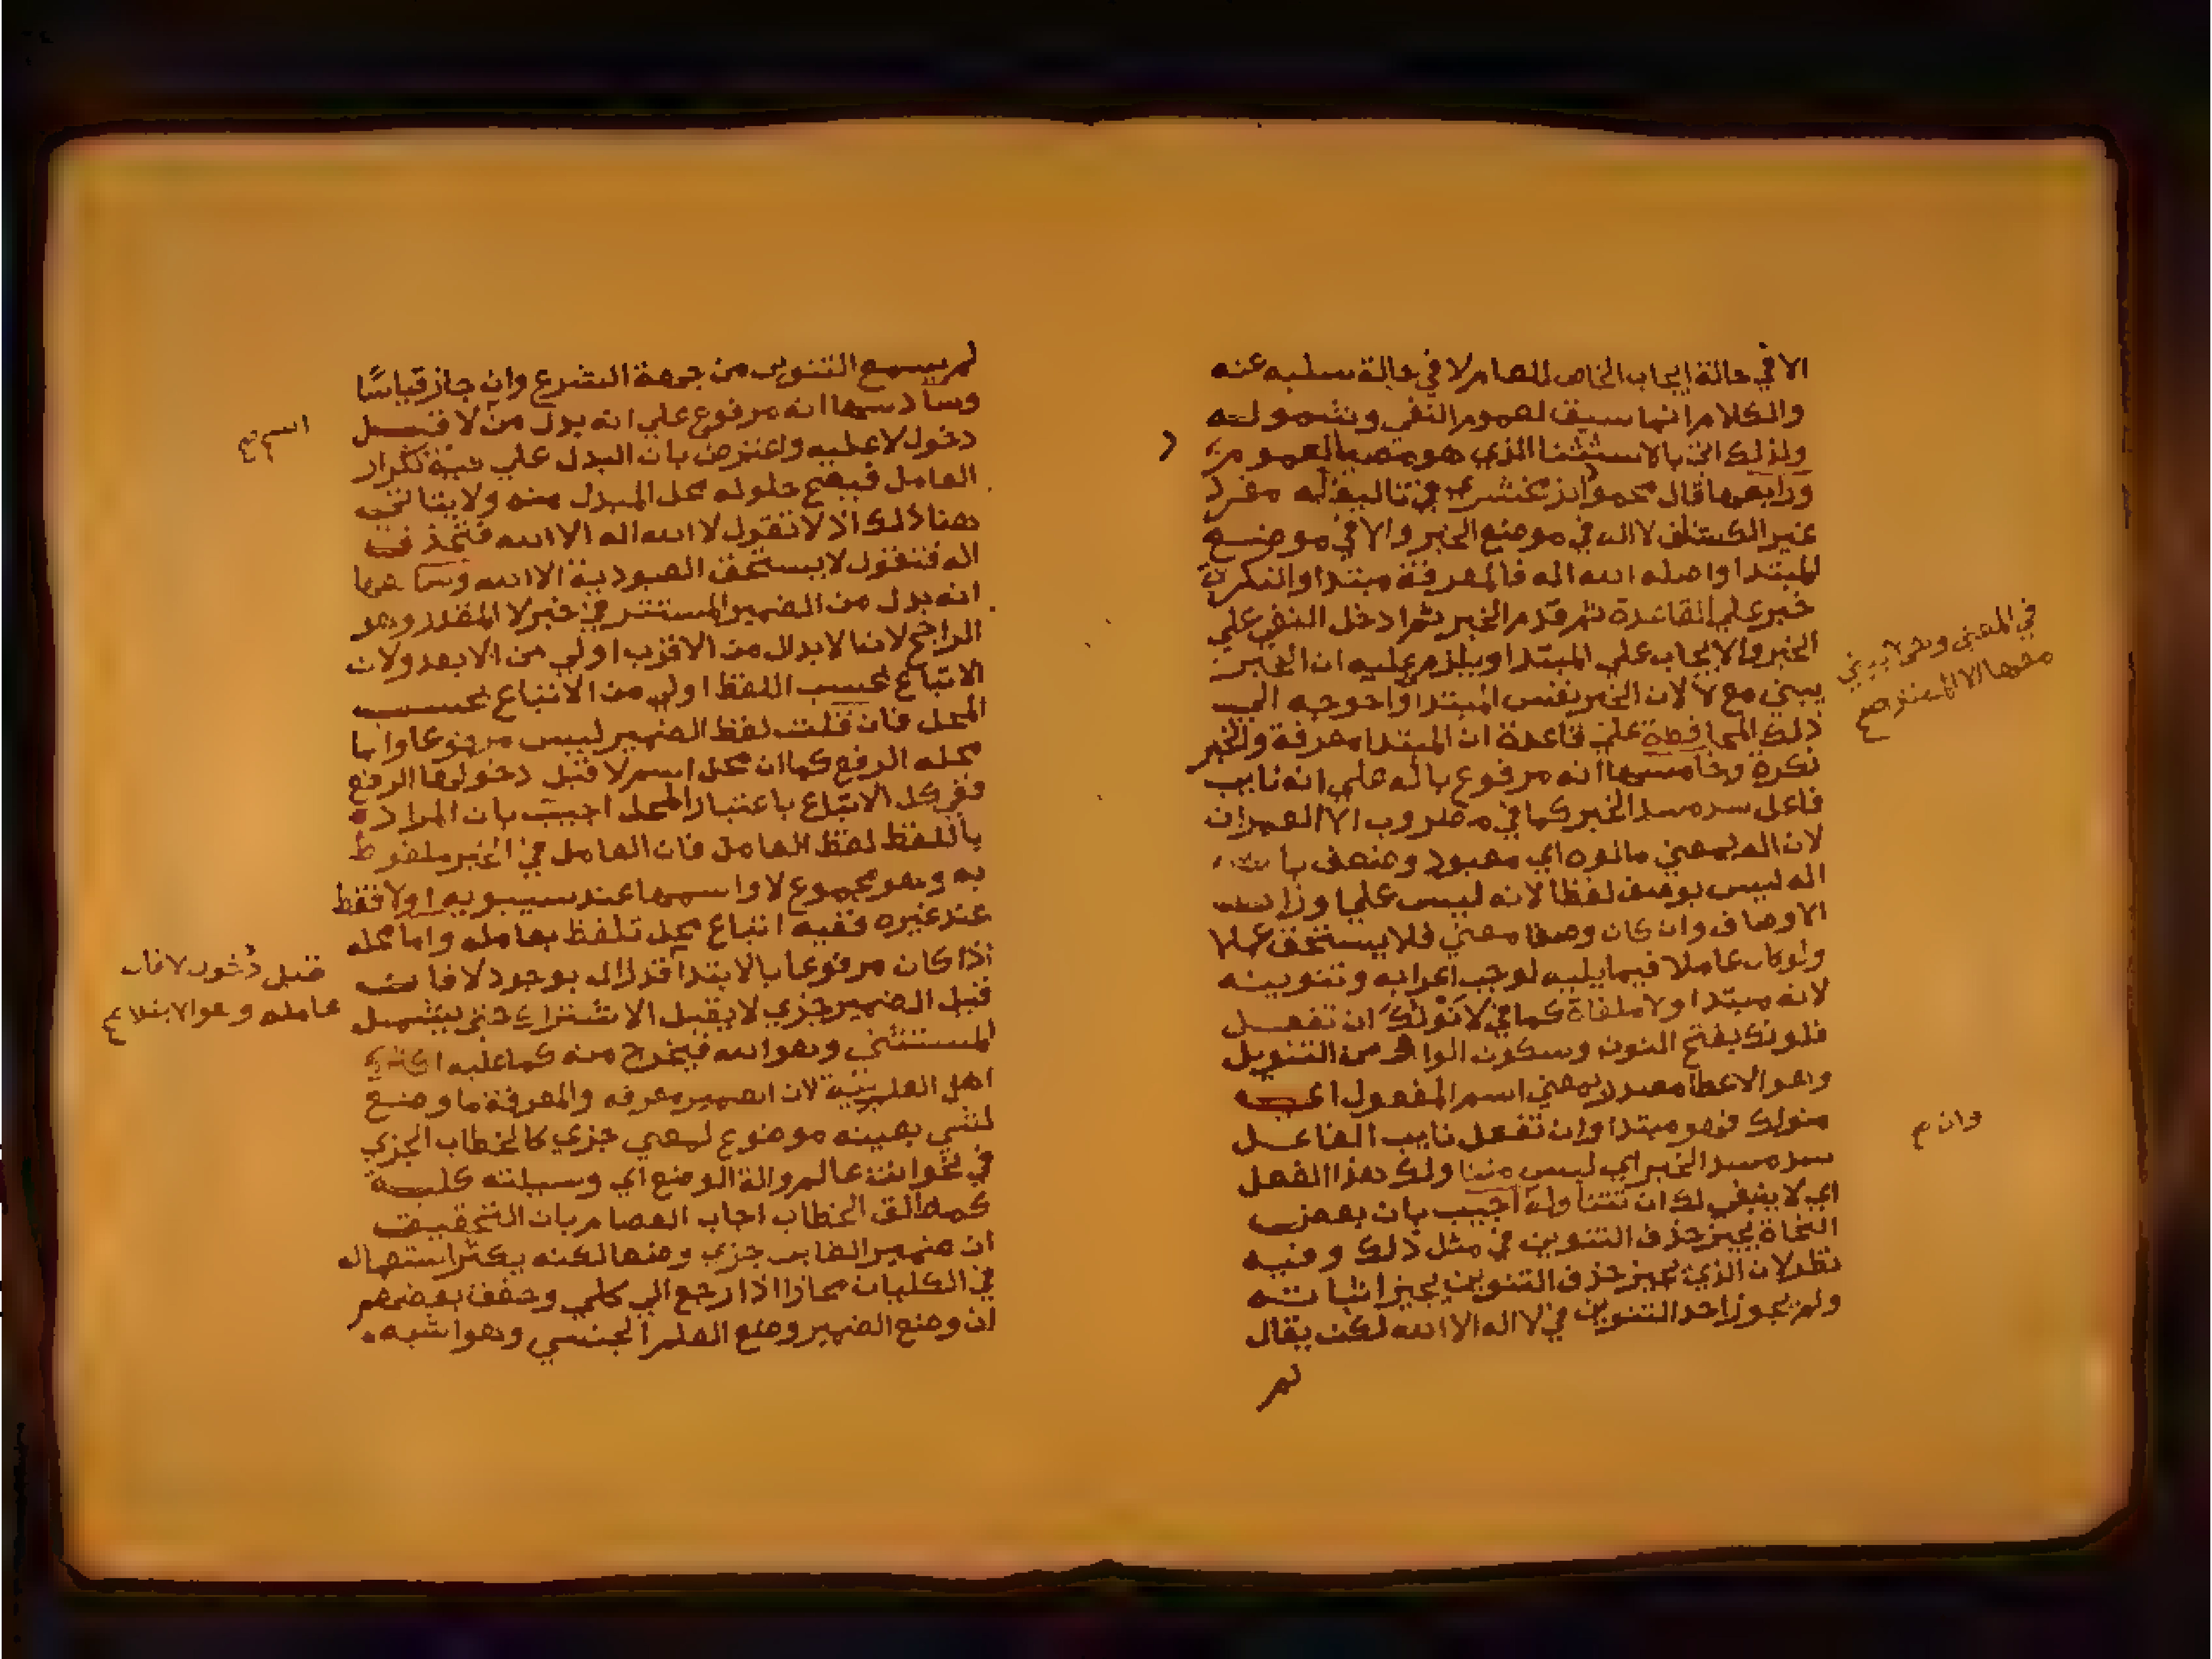 الا في حالة ايجاب الخاص للعام لا في حالة سلبه عنه
والكلام انما سيق لعموم النفي وشموله
ولذلك اتي بالاستثنا الذي هو
ورابعها قال محمود الزمخشري في تاليف له مفرد
غير الكشاف لا اله في موضع الخبر والا في موضع
المبتدا واصله الله اله فالمعرفة مبتدا والنكرة
خبر علي القاعدة ثم قدم الخبر ثم ادخل النفي علي
الخبر والايجاب علي المبتدا ويلزم عليه ان الخبر
يبني مع لا لان الخبر نفس المبتدا واحوجه الي
ذلك المحافظة علي قاعدة ان المبتدا معرفة والخبر
نكرة وخامسها انه مرفوع باله علي انه نايب
فاعل سد مسد الخبر كما في مضروب العمران
لان اله بمعني مالوه اي معبود وضعف بان
اله ليس بوصف لفظا لانه ليس علي اوزان
الاوصاف وان كان وصفا معني فلا يستحق عملا
ولو كان عاملا فيما يليه لوجب اعرابه وتنوينه
لانه مبتدا ولا ملغاة كما في لا نولك ان تفعل
فنولك بفتح النون وسكون الواو من التنويل
وهو الاعطا مصدر بمعني اسم المفعول اي
منولك فهو مبتدا وان تفعل نايب الفاعل
سد مسد الخبر اي ليس منولك هذا الفعل
اي لا ينبغي لك ان تتناوله اجيب بان بعض
النحاة يجيز حذف التنوين في مثل ذلك وفيه
نظر لان الذي يجيز حذف التنوين يجيز اثباته
ولم يجوز احد التنوين في لا اله الا الله لكن يقال
لم
في المعني
معها الا المبتدا صح
وان م
لم يسمع التنوين من جهة الشرع وان جاز قياسًا
وسادسها انه مرفوع علي انه بدل من لا قبل
دخول لا عليه واعترض بان البدل علي نية تكرار
العامل فيصح حلوله محل المبدل منه ولا يتاتي
هنا ذلك اذ لا تقول لا الله اله الا الله فتحذف
اله فتقول لا يستحق العبودية الا الله وسابعها
انه بدل من الضمير المستتر في خبر لا المقدر وهو
الراجح لاننا لابدال من الاقرب اولي من الابعد ولان
الاتباع بحسب اللفظ اولي من الاتباع بحسب
المحل فان قلت لفظ الضمير ليس مرفوعا وانما
محله الرفع كما ان محل اسم لا قبل دخولها الرفع
ففي كل الاتباع باعتبار المحل اجيب بان المراد
باللفظ لفظ العامل فان العامل في الخبر ملفوظ
به وهو مجموع لا واسمها عند سيبويه اولا فقط
عند غيره ففيه اتباع محل تلفظ بعامله واما محله
اذا كان مرفوعا بالابتدا قد زال بوجود لا فان
قيل الضمير جزي لا يقبل الاشتراك حتي يشمل
المستثني وهو الله فيخرج منه كما عليه اكثر
اهل العربية لان الضمير معرفه والمعرفة ما وضع
لشي بعينه موضوع لمعني جزي كالخطاب الجزي
في نحو انت عالم والة الوضع اي وسيلته كلية
كمطلق الخطاب اجاب العصام بان التحقيق
ان ضمير الغايب جزي وضعا لكنه يكثر استعماله
في الكليات مجازا اذا رجع الي كلي وحقق بعضهم
ان وضع الضمير وضع العلم الجنسي وهو اشبه
اسم
قبل دخول لا فان
عامله وهو الابتدا